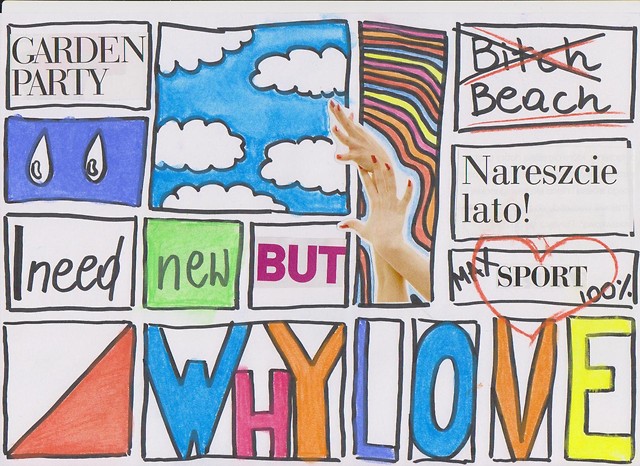 GARDEN
PARTY
Bitch
Beach
Nareszcie
lato!
I need
new
BUT
MAX SPORT 100%
WHY
LOVE